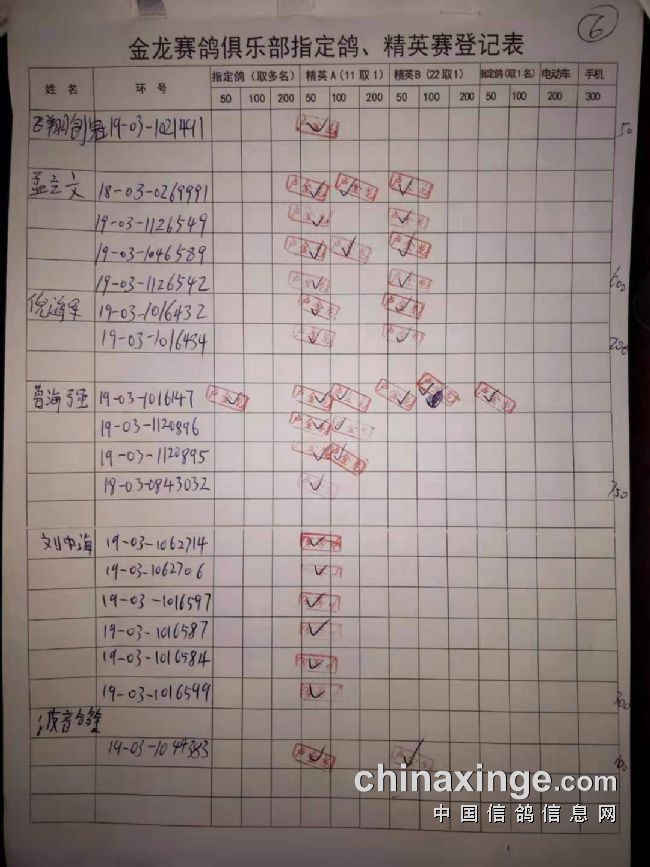 6
金龙赛鸽俱乐部指定鸽、精英赛登记表
姓名 环号 指定鸽(取多名) 精英A(11取1) 精英B(22取1) 指定鸽(取1名) 电动车 手机
50 100 200 50 100 200 50 100 200 50 100 200 300
飞翔 19-03-1021491 50
孟立文 18-03-0269991
19-03-1126549
19-03-1046589
19-03-1126542 600
倪海军 19-03-1016432
19-03-1016434 200
曹海 19-03-1016147
19-03-1120896
19-03-1120895
18-03-0843032 750
刘中海 19-03-1062714
19-03-1062706
19-03-1016597
19-03-1016587
19-03-1016584
19-03-1016599 300
波音鸽
19-03-1044383 100
chinaxinge.com
中国信鸽信息网